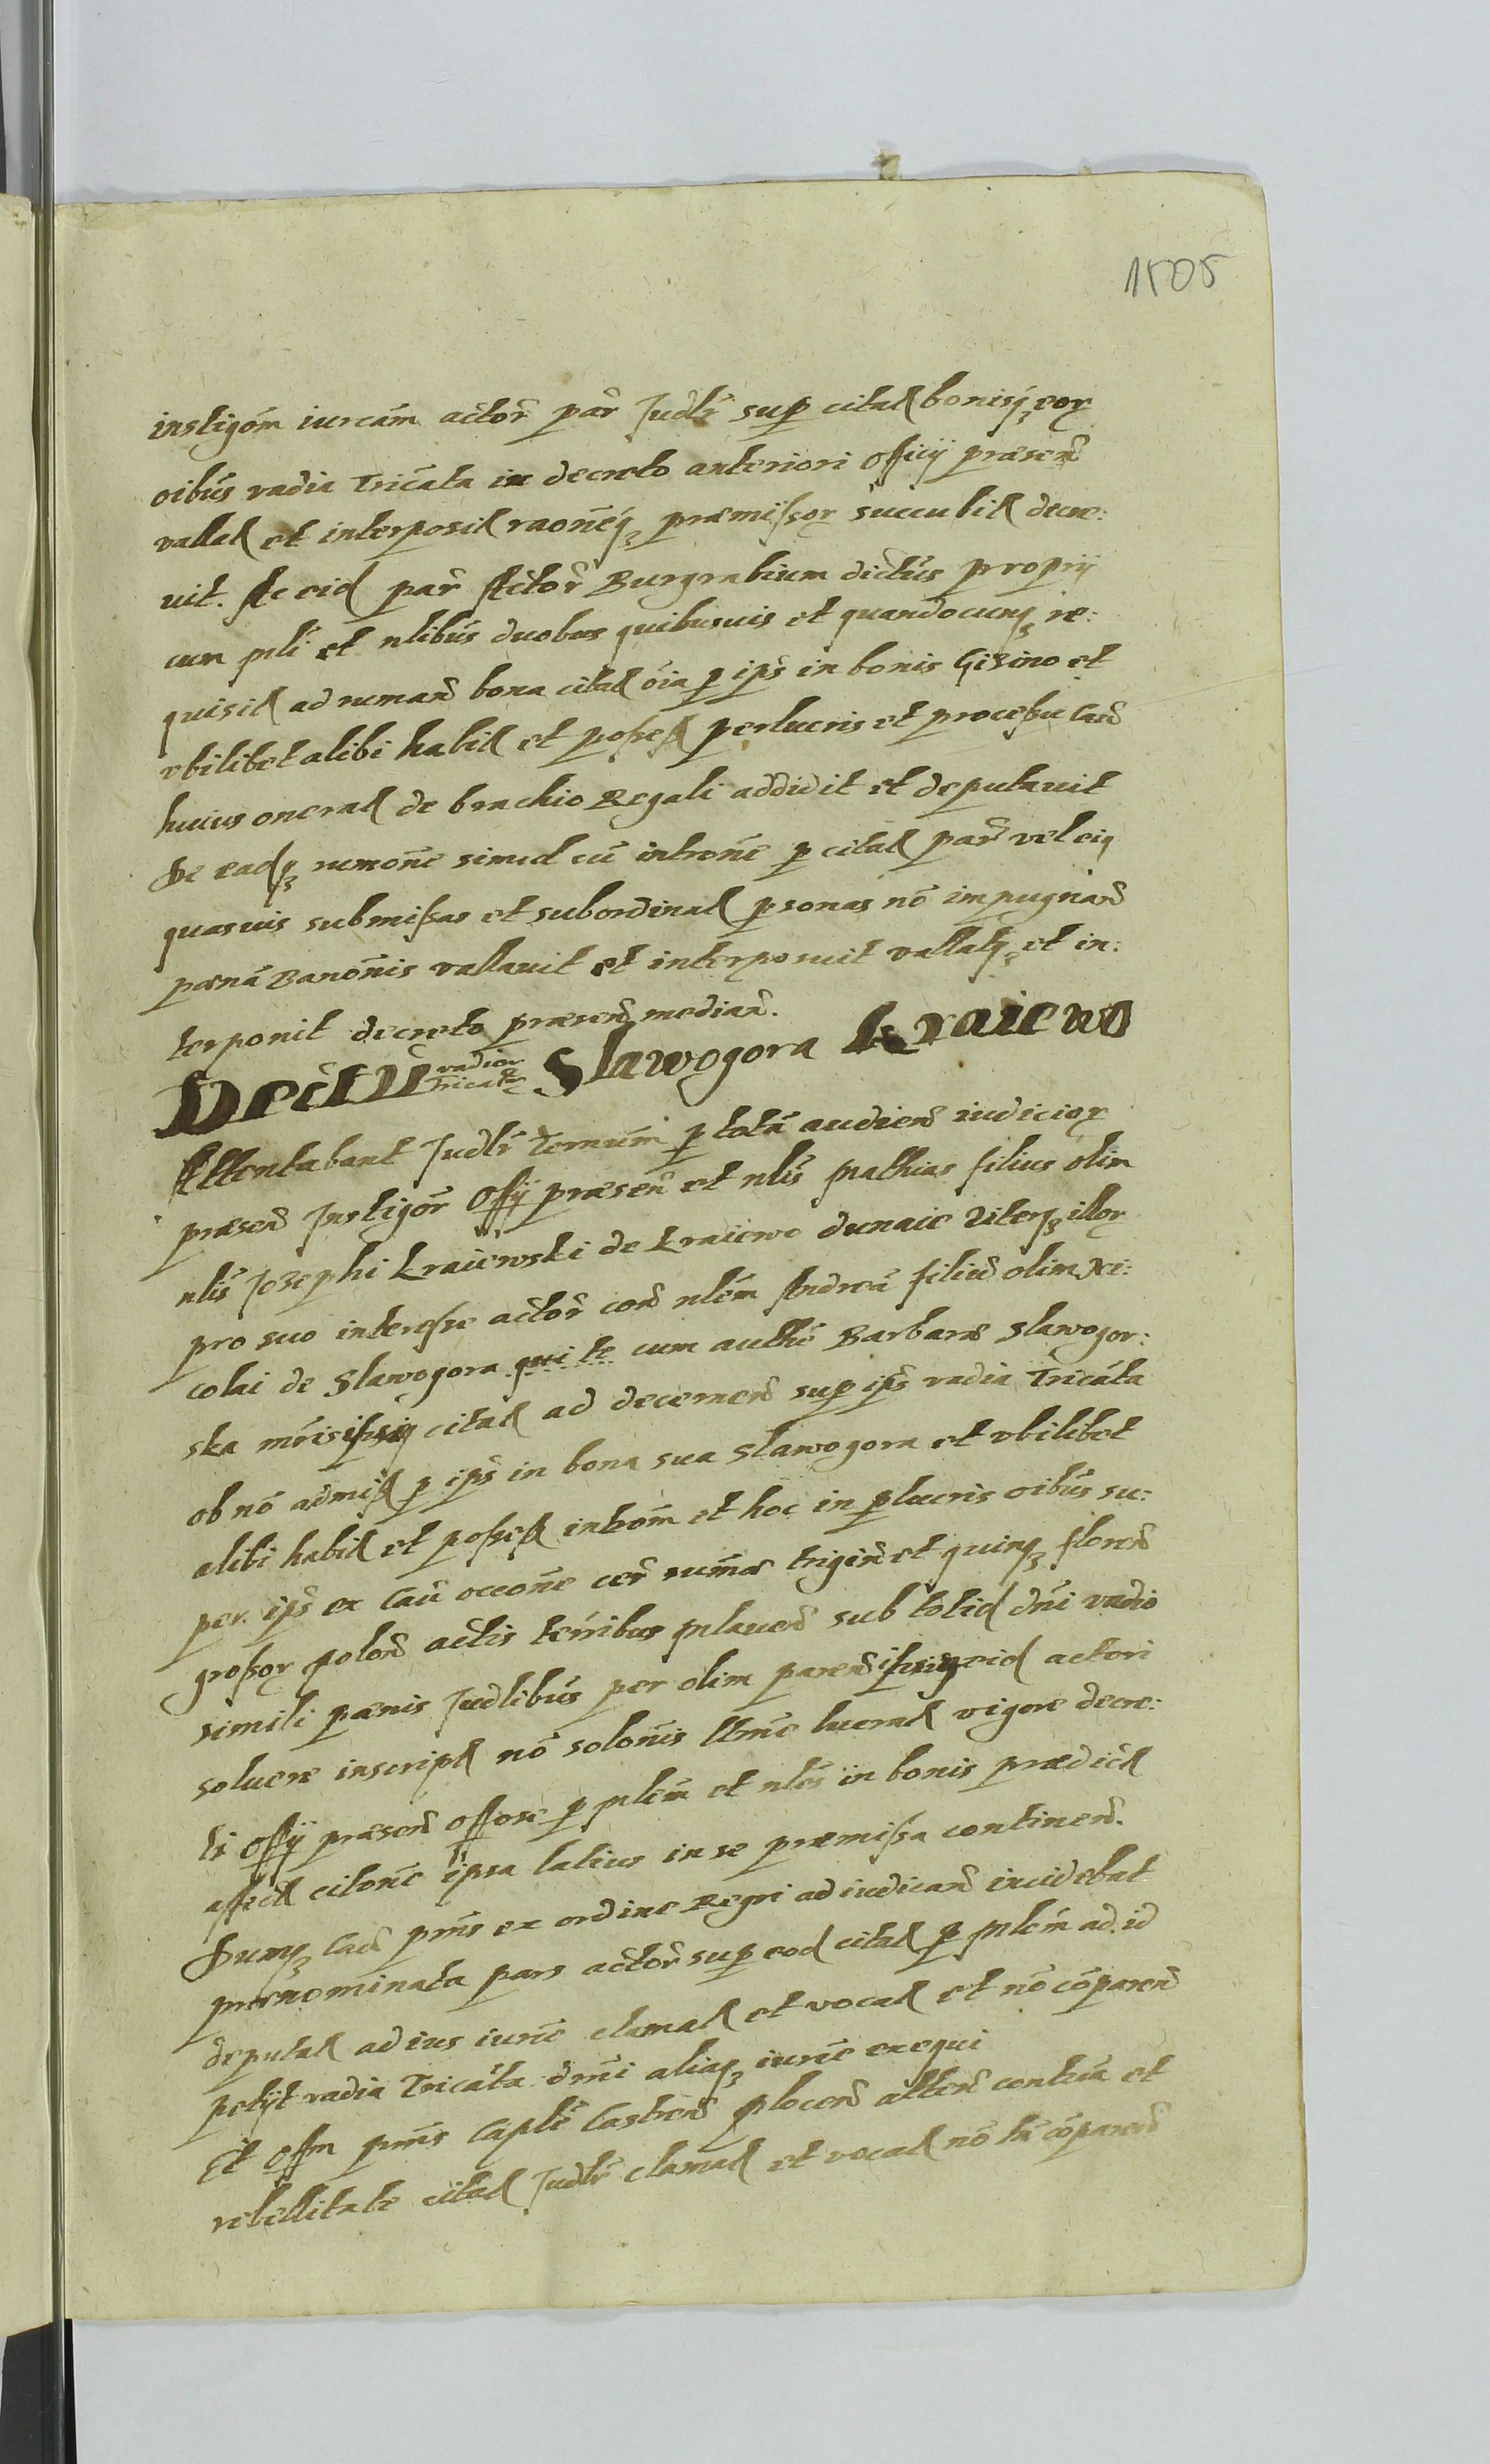 1505
instigõm iurcãm actor̃ par̃ Judlr̃ sup citat bonisq̃ eor
oibus vadia Tricata in decreto anteriori officij præsen̄
vallat et interposit raoneq̃ præmissor succubit decre:
uit. Ac eid par̃ Actor̃ Burgrabium dictus proprij
cum mli et nlibus duobus quibusuis et quandocunq̃ re:
quisit ad reman̄ bona citat oia p ips in bonis Gizino et
vbilibet alibi habit et possess perlucris et processu Caus̄
huius onerat de brachio Regali addidit et deputauit
De eadq̃ remone simul cũ introne p citat par̃ vel eiq
quasuis submissas et subordinat psonas nõ impugnan̄
pœnã Banonis vallauit et interposuit vallatq̃ et in:
terponit decreto præsen̄ median̄.
Decretũ vadior Tricator Slawogora Kraiewo
Attentabant Judlr̃ Termũm p totã audien̄ iudicior
præsen̄ Instigor̃ Offij præsen̄ et nlis Mathias filius olim
nlis Josephi Kraiewski de Kraiewo dunaie Vterq̃ illor
pro suo interesse actor̃ con̄ nlẽm Andreã filiũ olim Ni:
colai de Slawogora qui te cum authẽ Barbaræ Slawogor:
ska mr̃is ipsiq citat ad decernen̄ sup ips vadia Tricata
ob nõ admiss p ips in bona sua Slawogora et vbilibet
alibi habit et possess introm et hoc in plucris oibus su:
per ips ex Caũ occone cer̃ summæ trigin̄ et quinq̃ floren̄
grossor polon̄ actis terribus Mlauen̄ sub totid dni vadio
simili pœnis Judlibus per olim paren̄ ipsiq eid actori
soluere inscript nõ solonis ltme lucrat vigore decre:
ti Offij præsen̄ offose p mlem et nles in bonis prædict
affect citone ipsa latius in se præmissa continen̄.
Dumq̃ Caũ pms ex ordine Regri ad iudican̄ incidebat
prænominata pars actor̃ sup eod citat p mlem ad id
deputat ad ius iurie clamat et vocat et nõ cõparen̄
petijt vadia Tricata dmi aliaq̃ iurie exequi
Et Offm pms Caplẽ Castren̄ Plocen̄ atten̄ contuã et
rebellitate citat Judlr̃ clamat et vocat nõ tñ cõparen̄